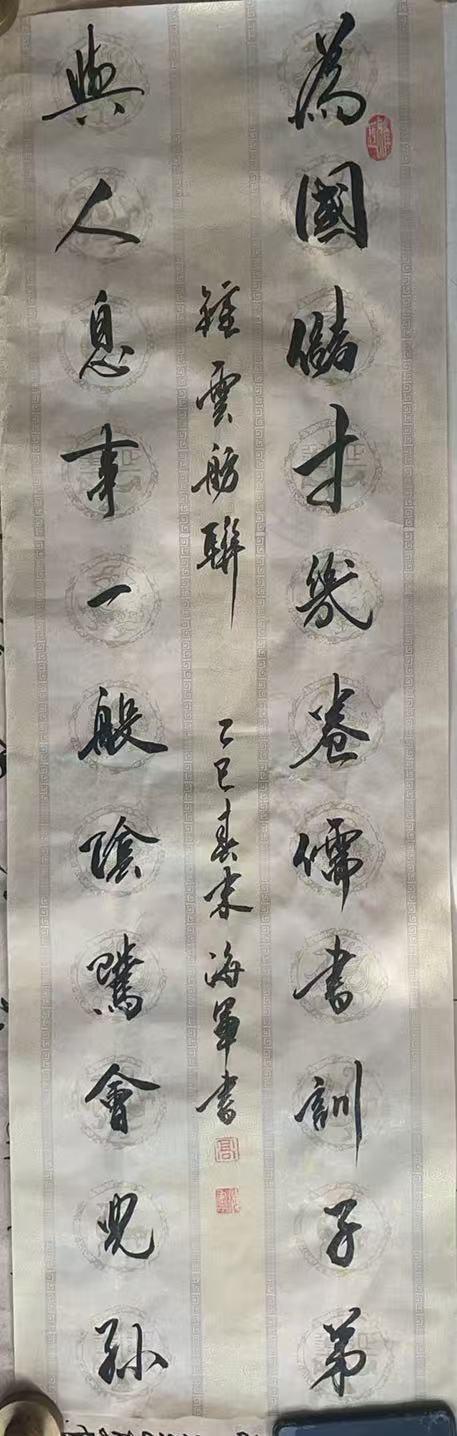 為國儲才幾卷儒書訓子弟
鍾雲舫聯
乙巳春末海軍書
與人息事一般陰騭會兒孫